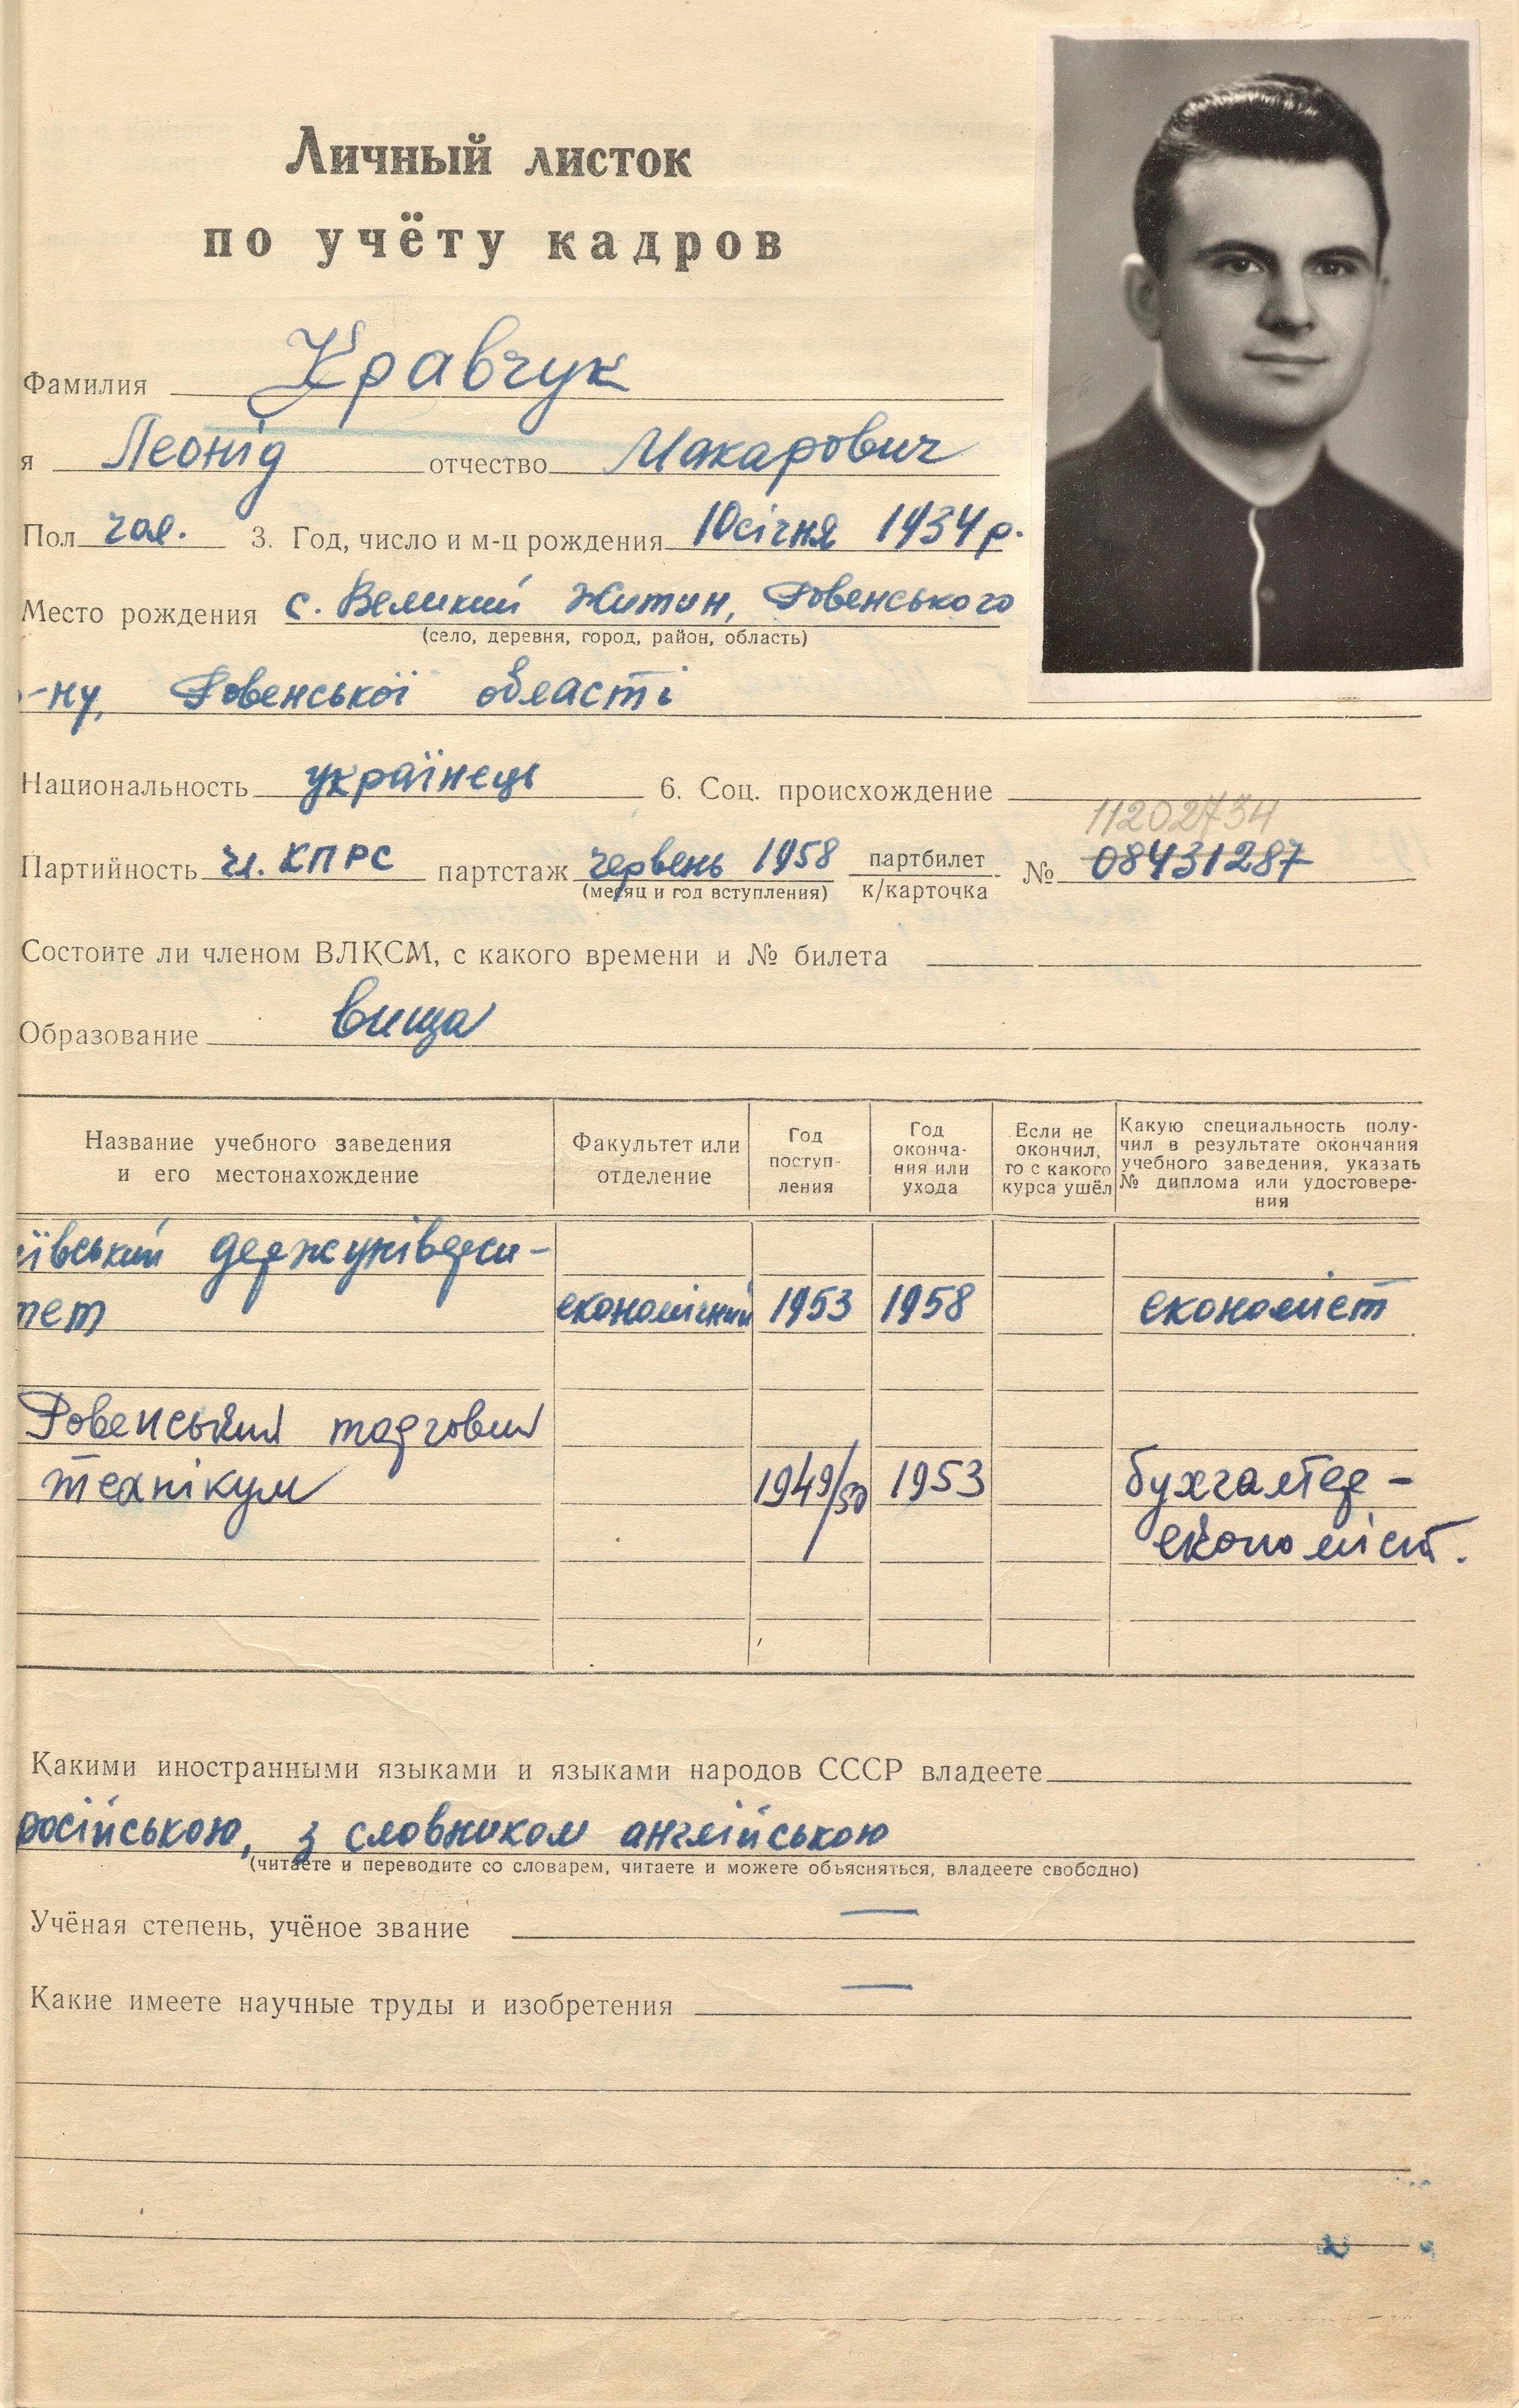 Личный листок
по учёту кадров
Фамилия Кравчук
я Леонід отчество Макарович
Пол чол. 3. Год, число и м-ц рождения 10 січня 1934 р.
Место рождения с. Великий Житин, Ровенського
(село, деревня, город, район, область)
-ну, Ровенської області
Национальность українець 6. Соц. происхождение
11202734
Партийность чл. КПРС партстаж червень 1958 партбилет № 08431287
(месяц и год вступления) к/карточка
Состоите ли членом ВЛКСМ, с какого времени и № билета
Образование вища
Название учебного заведения и его местонахождение
Факультет или отделение
Год поступ-ления
Год оконча-ния или ухода
Если не окончил, то с какого курса ушёл
Какую специальность полу-чил в результате окончания учебного заведения, указать № диплома или удостовере-ния
ївський держуніверси-
тет економічний 1953 1958 економіст
Ровенський торговий
технікум 1949/50 1953 бухгалтер-
економіст.
Какими иностранными языками и языками народов СССР владеете
російською, з словником англійською
(читаете и переводите со словарем, читаете и можете объясняться, владеете свободно)
Учёная степень, учёное звание —
Какие имеете научные труды и изобретения —